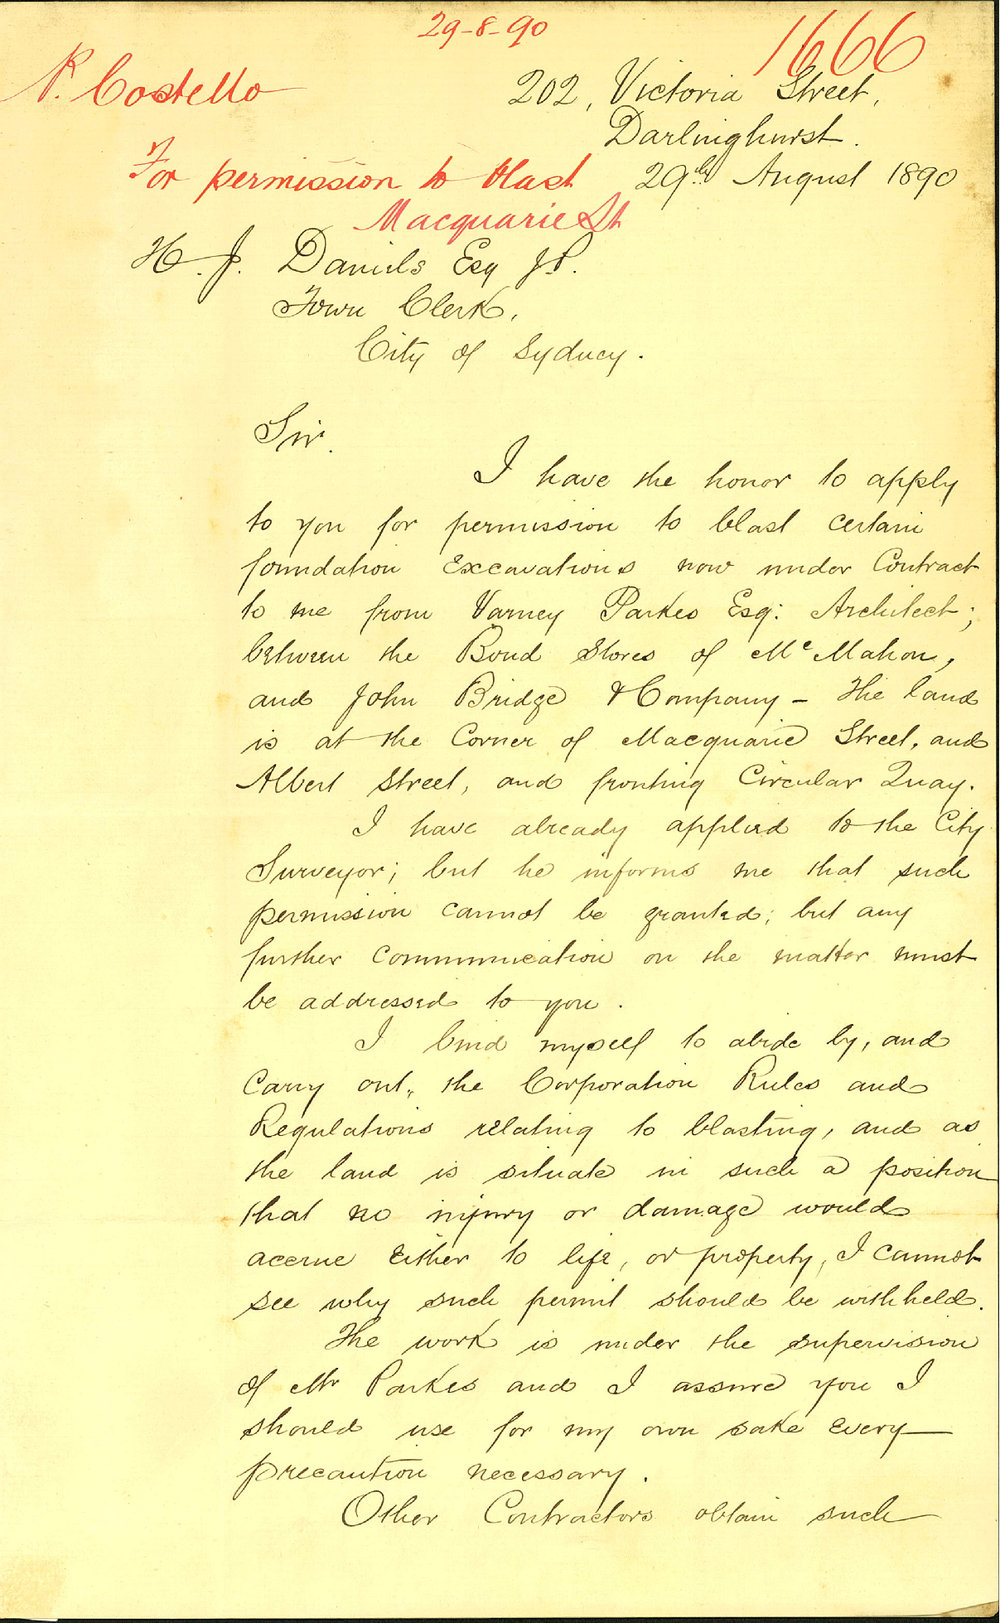 29-8-90
1666
P. Costello
202, Victoria Street,
Darlinghurst.
For permission to blast
29th August 1890
Macquarie St
H. J. Daniels Esq J.P.
Town Clerk,
City of Sydney.
Sir.
I have the honor to apply
to you for permission to blast certain
foundation Excavations now under Contract
to me from Varney Parkes Esq: Architect;
between the Bond Stores of McMahon,
and John Bridge & Company - The land
is at the Corner of Macquarie Street, and
Albert Street, and fronting Circular Quay.
I have already applied to the City
Surveyor; but he informs me that such
permission cannot be granted; but any
further communication on the matter must
be addressed to you.
I bind myself to abide by, and
Carry out, the Corporation Rules and
Regulations relating to blasting, and as
the land is situate in such a position
that no injury or damage would
accrue Either to life, or property, I cannot
see why such permit should be withheld.
The work is under the supervision
of Mr Parkes and I assure you I
should use for my own sake Every
precaution necessary.
Other Contractors obtain such